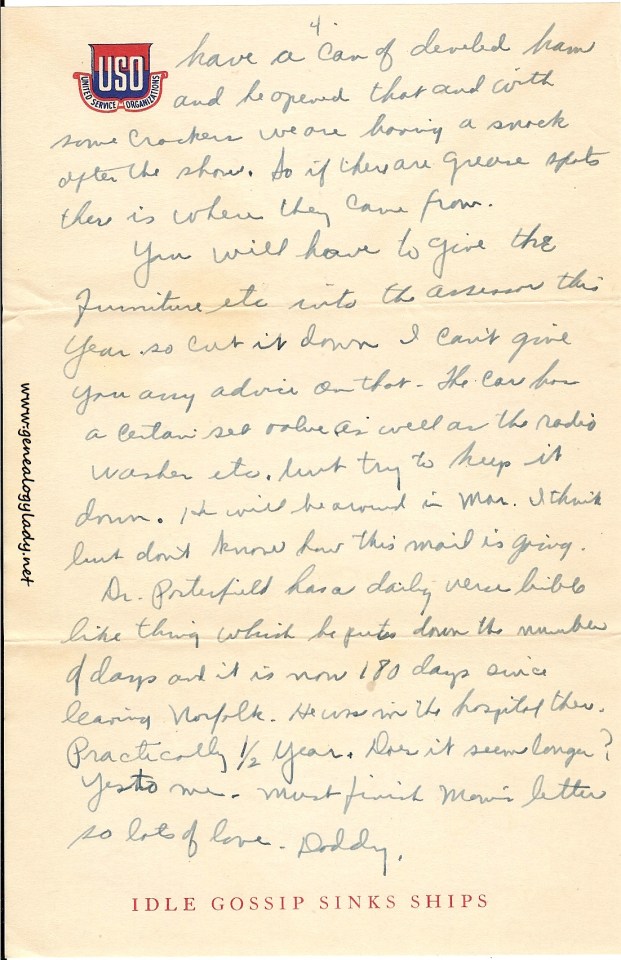 4
USO
UNITED SERVICE ORGANIZATIONS
have a can of develed ham
and he opened that and with
some crackers we are having a snack
after the show. So if there are grease spots
there is where they came from.
You will have to give the
furniture etc into the assessor this
year so cut it down I can't give
you any advice on that - The car has
a certain set value as well as the radio
washer etc. but try to keep it
down. He will be around in Mar. I think
but don't know how this mail is going.
Dr. Porterfield has a daily verse bible
like thing which he puts down the number
of days and it is now 180 days since
leaving Norfolk. He was in the hospital then.
Practically 1/2 year. Does it seem longer?
Yes to me - must finish Mom's letter
so lots of love - Daddy.
IDLE GOSSIP SINKS SHIPS
www.genealogylady.net